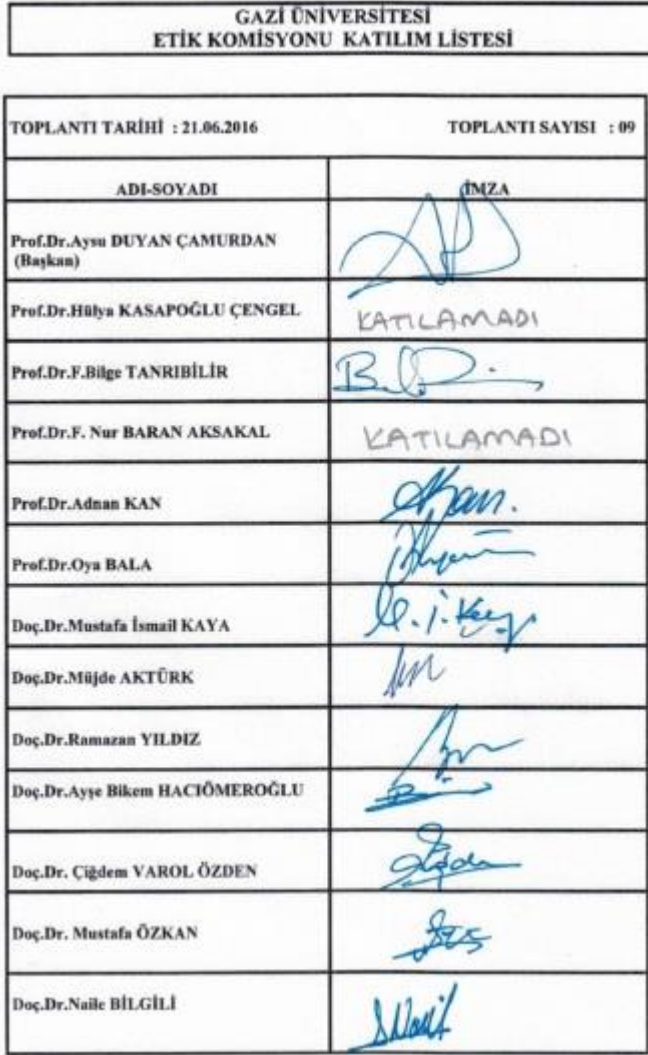 GAZİ ÜNİVERSİTESİ
ETİK KOMİSYONU KATILIM LİSTESİ
TOPLANTI TARİHİ : 21.06.2016 TOPLANTI SAYISI : 09
ADI-SOYADI İMZA
Prof.Dr.Aysu DUYAN ÇAMURDAN
(Başkan)
Prof.Dr.Hülya KASAPOĞLU ÇENGEL KATILAMADI
Prof.Dr.F.Bilge TANRIBİLİR
Prof.Dr.F. Nur BARAN AKSAKAL KATILAMADI
Prof.Dr.Adnan KAN
Prof.Dr.Oya BALA
Doç.Dr.Mustafa İsmail KAYA
Doç.Dr.Müjde AKTÜRK
Doç.Dr.Ramazan YILDIZ
Doç.Dr.Ayşe Bikem HACIÖMEROĞLU
Doç.Dr. Çiğdem VAROL ÖZDEN
Doç.Dr. Mustafa ÖZKAN
Doç.Dr.Naile BİLGİLİ